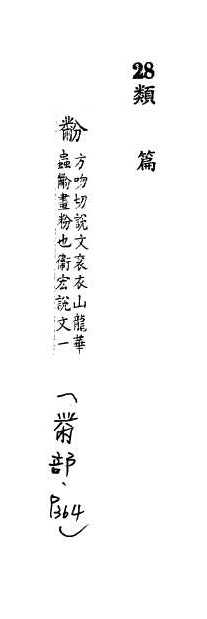 28類篇
黺
方吻切說文袞衣山龍華
蟲黺畫粉也衛宏說文一
(黹部、P364)